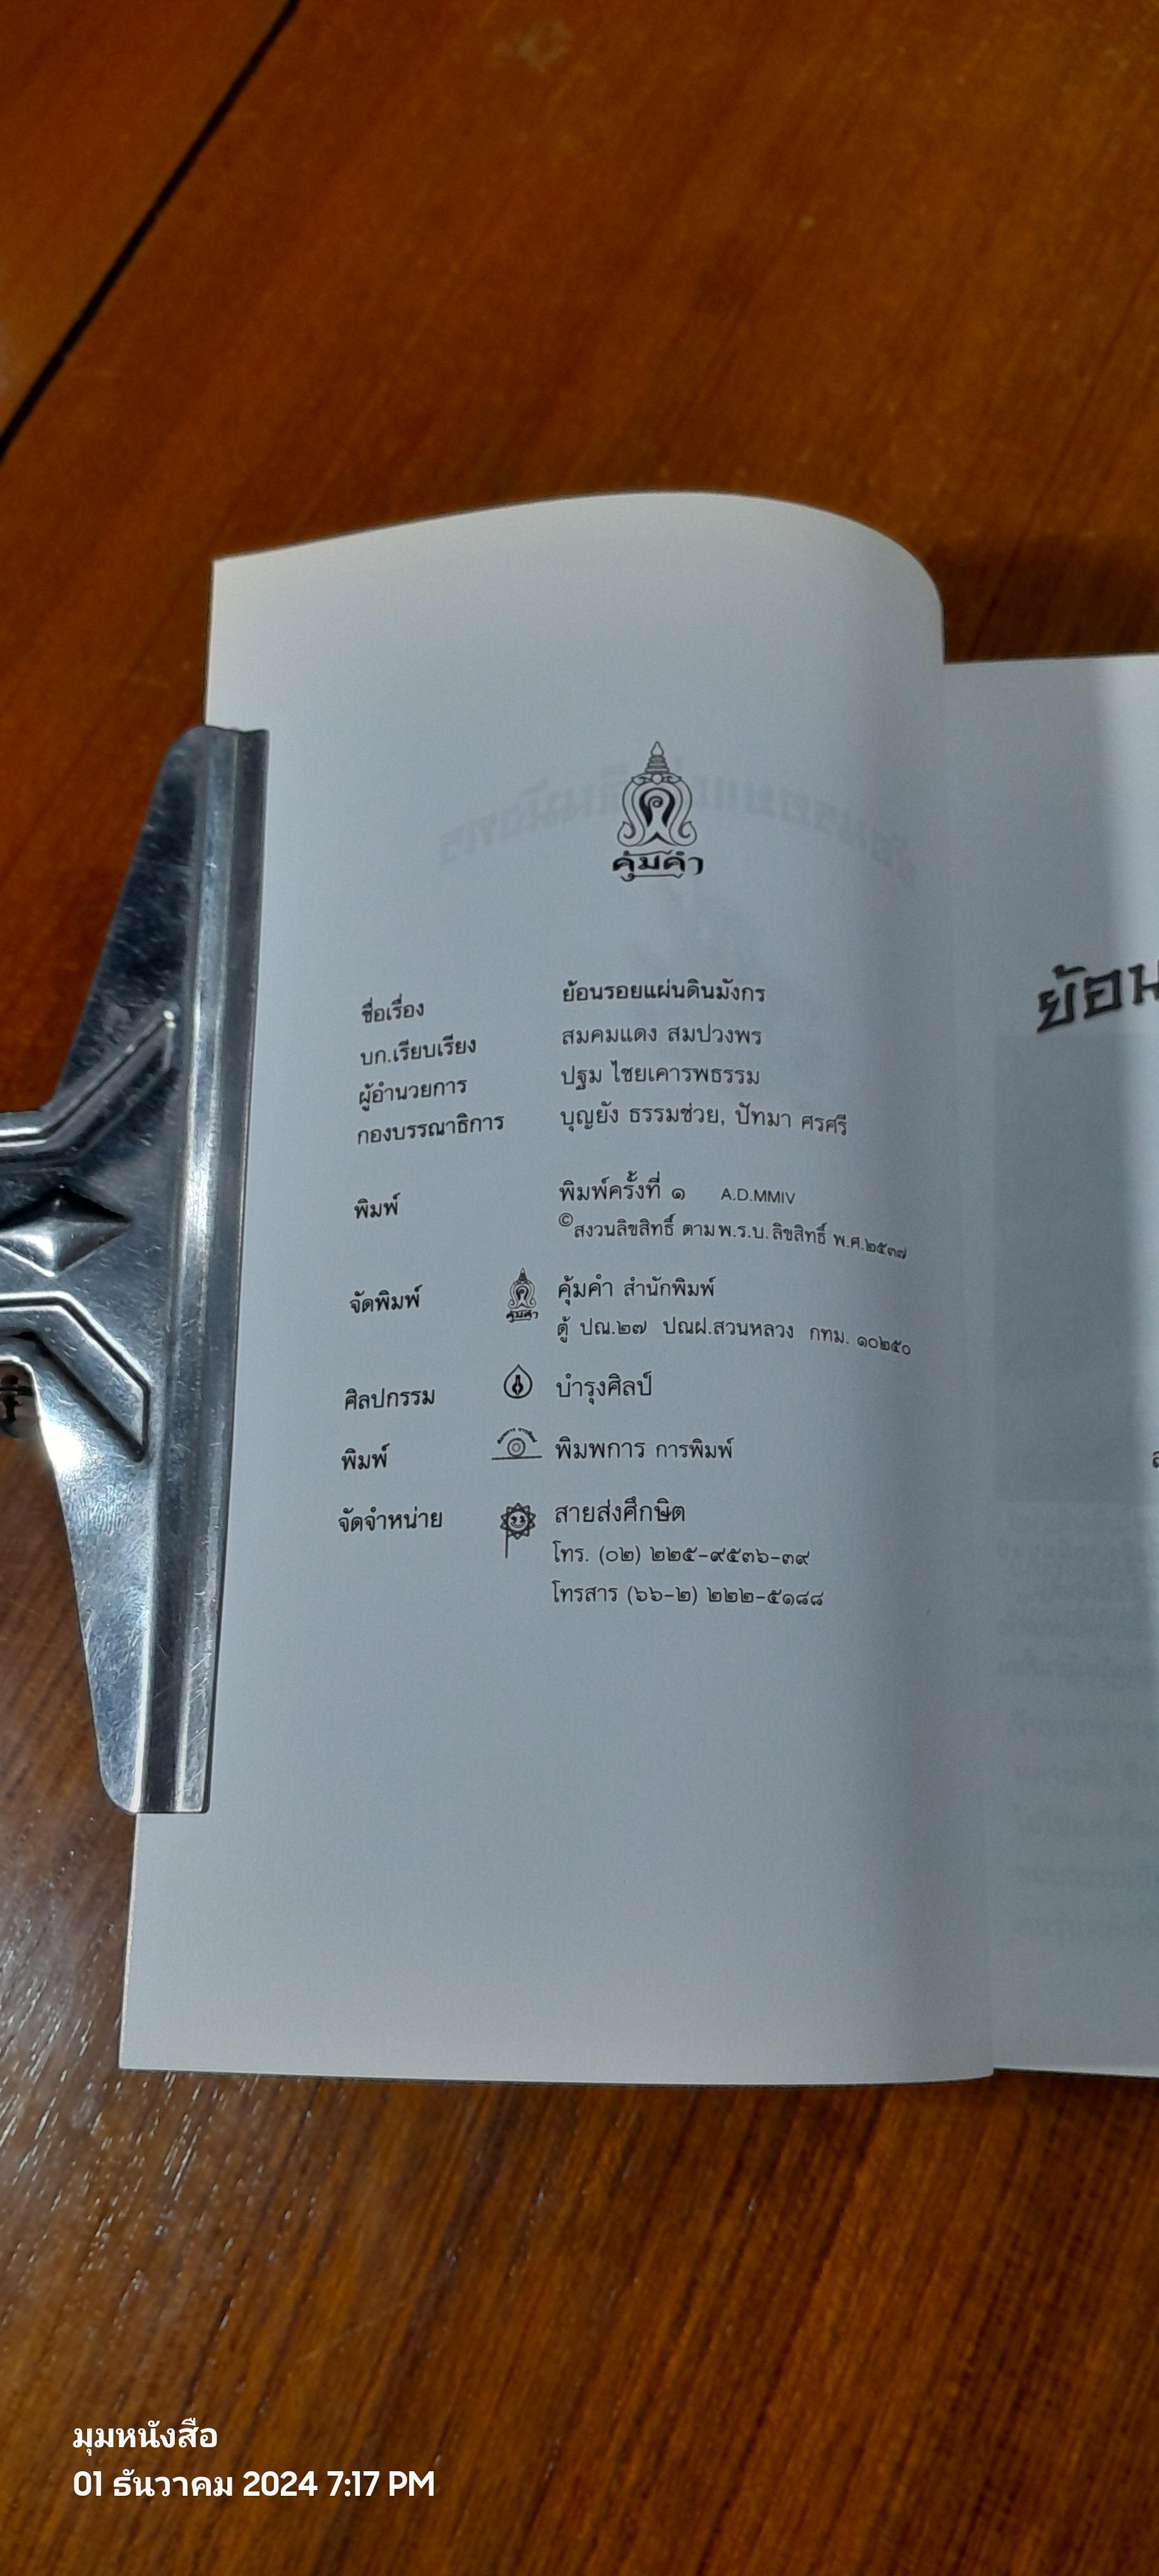 คุ้มคำ
ชื่อเรื่อง ย้อนรอยแผ่นดินมังกร
บก.เรียบเรียง สมคมแดง สมปวงพร
ผู้อำนวยการ ปฐม ไชยเคารพธรรม
กองบรรณาธิการ บุญยัง ธรรมช่วย, ปัทมา ศรศรี
พิมพ์ พิมพ์ครั้งที่ ๑ A.D.MMIV
©สงวนลิขสิทธิ์ ตาม พ.ร.บ. ลิขสิทธิ์ พ.ศ.๒๕๓๗
จัดพิมพ์ คุ้มคำ คุ้มคำ สำนักพิมพ์
ตู้ ปณ.๒๗ ปณฝ.สวนหลวง กทม. ๑๐๒๕๐
ศิลปกรรม บำรุงศิลป์
พิมพ์ พิมพการ การพิมพ์
จัดจำหน่าย สายส่งศึกษิต
โทร. (๐๒) ๒๒๕-๙๕๓๖-๓๙
โทรสาร (๖๖-๒) ๒๒๒-๕๑๘๘
ย้อน
มุมหนังสือ
01 ธันวาคม 2024 7:17 PM